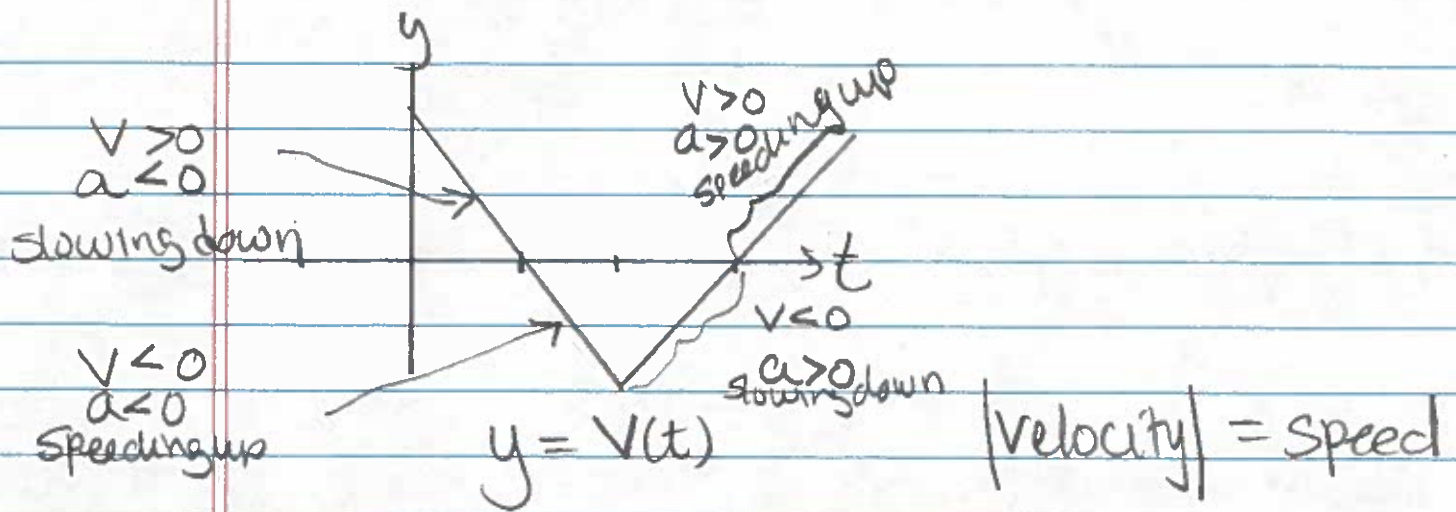 y
V>0
a<0
slowing down
V>0
a>0
speeding up
t
V<0
a>0
slowing down
V<0
a<0
Speeding up
y = V(t)
|Velocity| = Speed